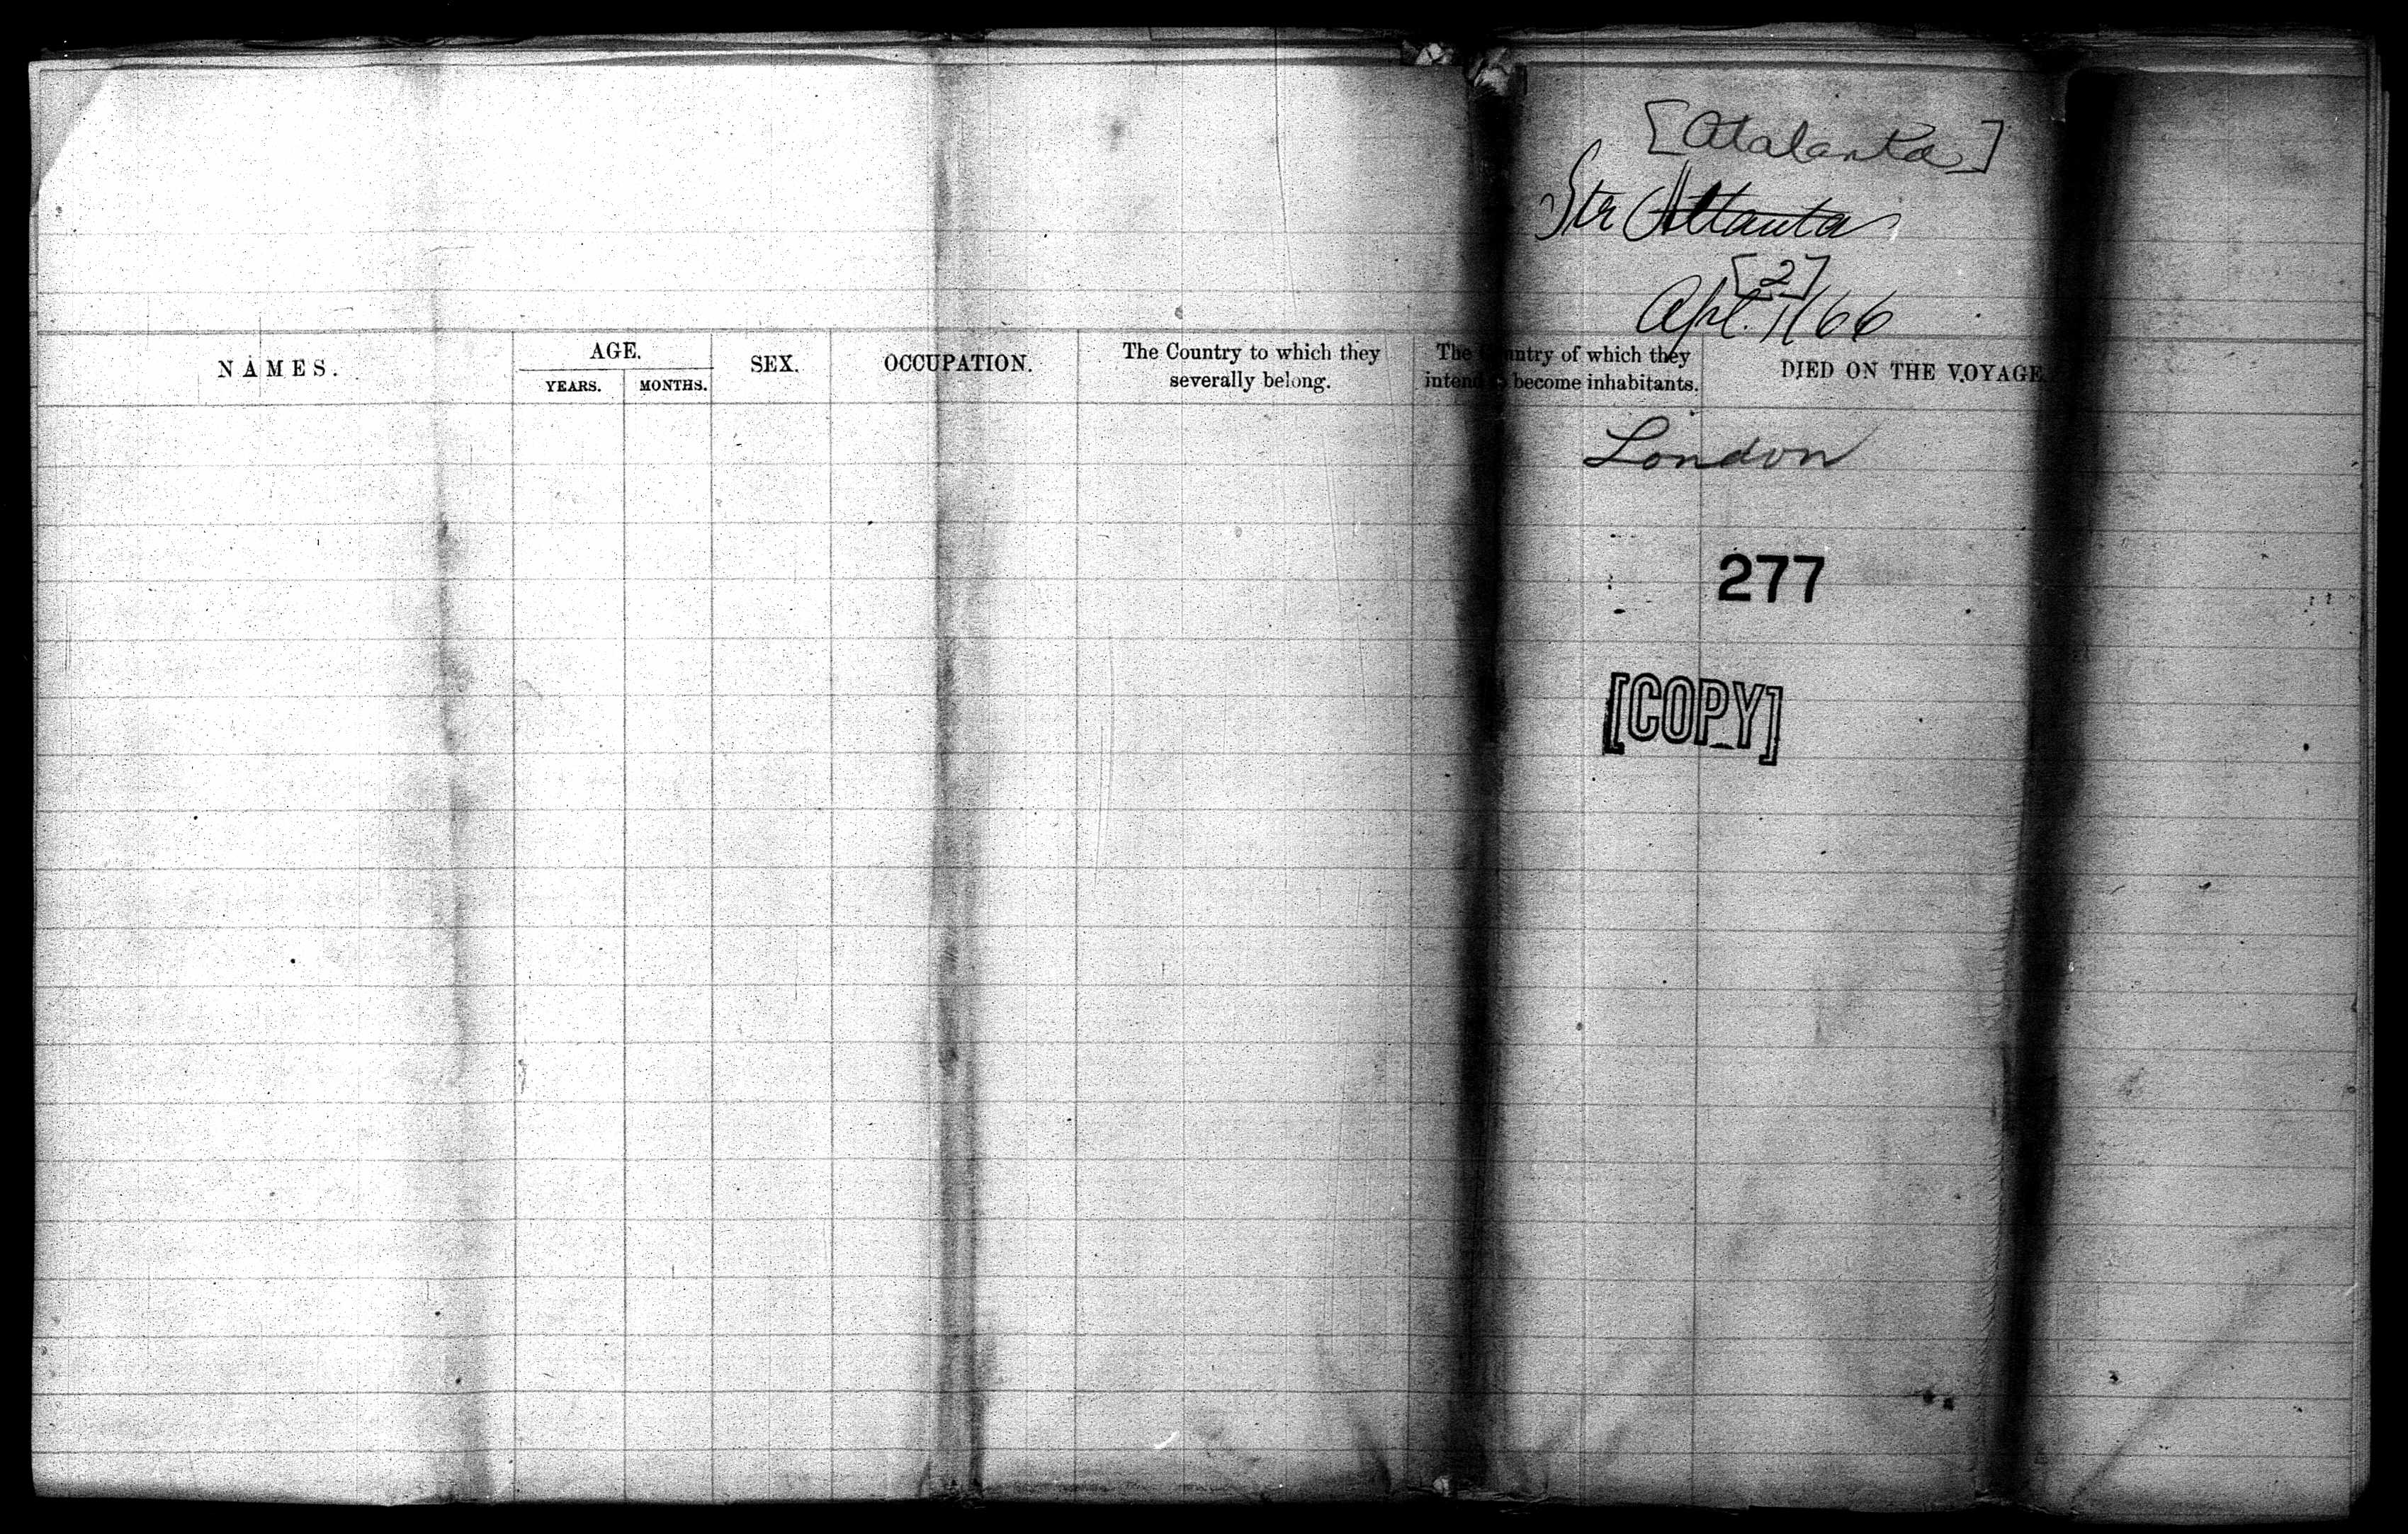 [Atalanta]
Str Atlanta
[2]
Apl. 1/66
NAMES.
AGE.
YEARS.
MONTHS.
SEX.
OCCUPATION.
The Country to which they
severally belong.
The Country of which they
intend to become inhabitants.
DIED ON THE VOYAGE.
London
277
[COPY]